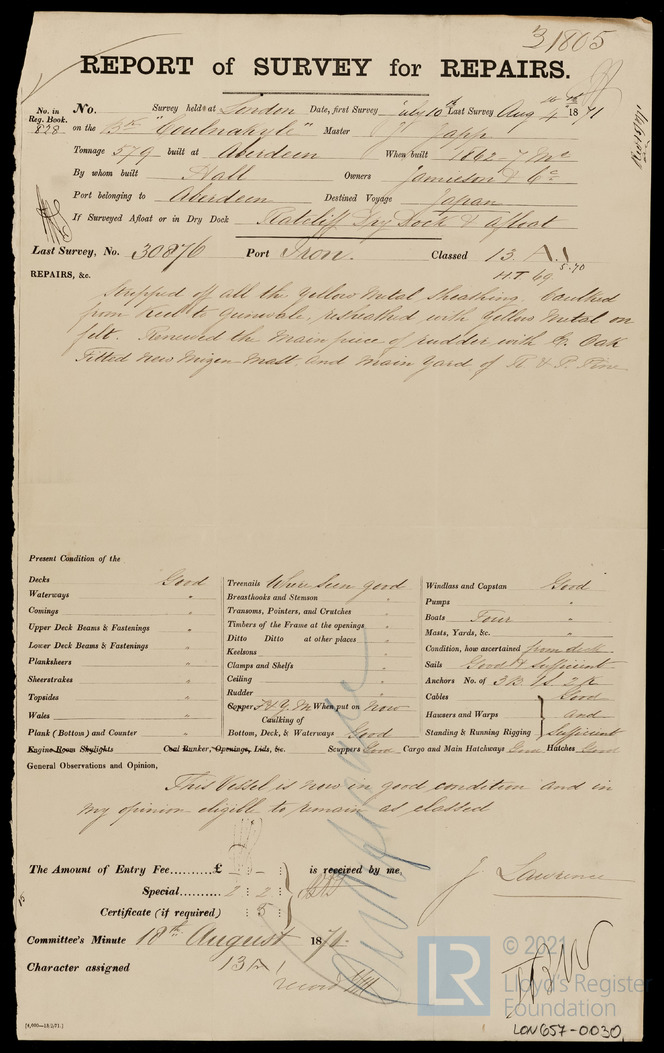 31805
REPORT of SURVEY for REPAIRS.
No. in Reg. Book. 828
No. Survey held at London Date, first Survey July 10th Last Survey Aug 4 1871
on the Bk "Coulnakyle" Master Japp
Tonnage 579 built at Aberdeen When built 1862-7 Mo
By whom built Hall Owners Jamieson & Co
Port belonging to Aberdeen Destined Voyage Japan
If Surveyed Afloat or in Dry Dock Ratcliff Dry Dock & afloat
Last Survey, No. 30876 Port Iron. Classed 13 A.1
HT 69 5.70
REPAIRS, &c.
Stripped off all the Yellow Metal Sheathing. Caulked
from Keel to Gunwale, resheathed with Yellow Metal on
felt. Renewed the main piece of rudder with E. Oak
Fitted New Mizen Mast, and Main Yard of R & P. Pine
Present Condition of the
Decks Good
Waterways "
Comings "
Upper Deck Beams & Fastenings "
Lower Deck Beams & Fastenings "
Planksheers "
Sheerstrakes "
Topsides "
Wales "
Plank (Bottom) and Counter "
Engine Room Skylights
Treenails Where seen good
Breasthooks and Stemson "
Transoms, Pointers, and Crutches "
Timbers of the Frame at the openings "
Ditto Ditto at other places "
Keelsons "
Clamps and Shelfs "
Ceiling "
Rudder "
Copper F & Y. M When put on Now
Caulking of
Bottom, Deck, & Waterways Good
Coal Bunker, Openings, Lids, &c.
Windlass and Capstan Good
Pumps "
Boats Four "
Masts, Yards, &c. "
Condition, how ascertained from deck.
Sails Good & sufficient
Anchors No. of 3 B. 1 S. 2 K
Cables Good
Hawsers and Warps and
Standing & Running Rigging Sufficient
Scuppers Good Cargo and Main Hatchways Good Hatches Good
General Observations and Opinion,
This Vessel is now in good condition and in
my opinion eligible to remain as classed
The Amount of Entry Fee..........£ is received by me,
Special.......... 2 : 2 :
Certificate (if required) : 5 :
J. Lawrence
Committee's Minute 18th August 1871.
Character assigned 13 A 1
[4,000—13/2/71.]
LR
© 2021
Lloyd's Register
Foundation
LON657-0030